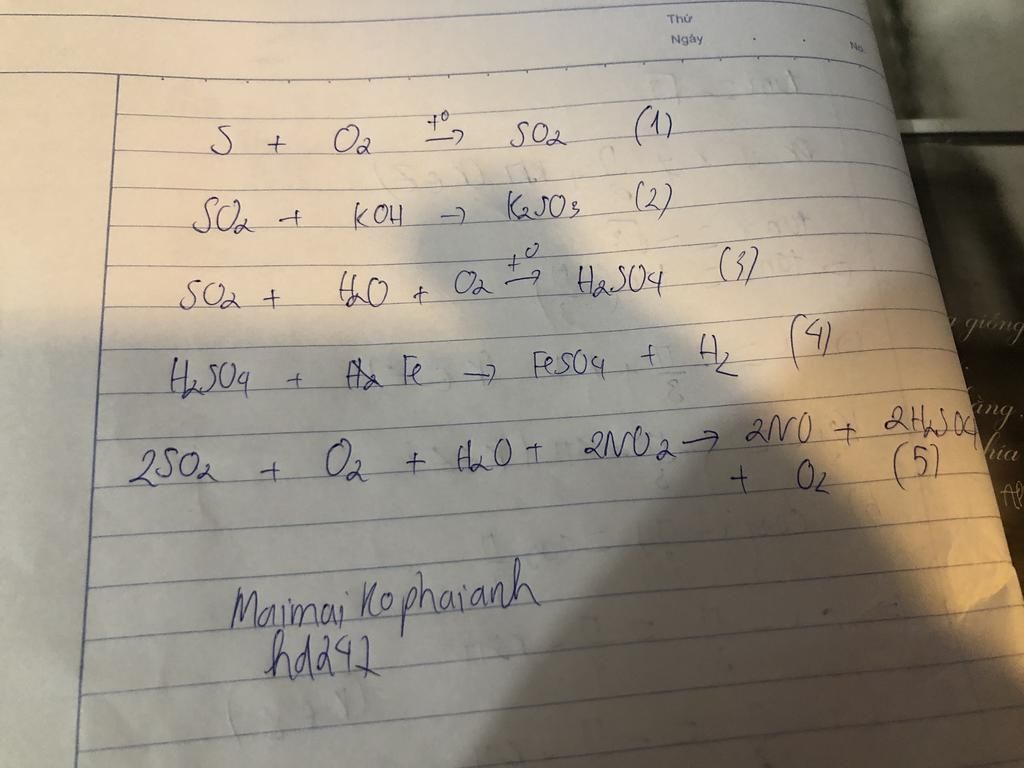 Thứ
Ngày . . No.
S + O2 t° → SO2 (1)
SO2 + KOH → K2SO3 (2)
SO2 + H2O + O2 t° → H2SO4 (3)
H2SO4 + Fe → FeSO4 + H2 (4)
2SO2 + O2 + H2O + 2NO2 → 2NO + 2H2SO4
+ O2 (5)
Maimai Ko phaianh
hd247
giống
ằng